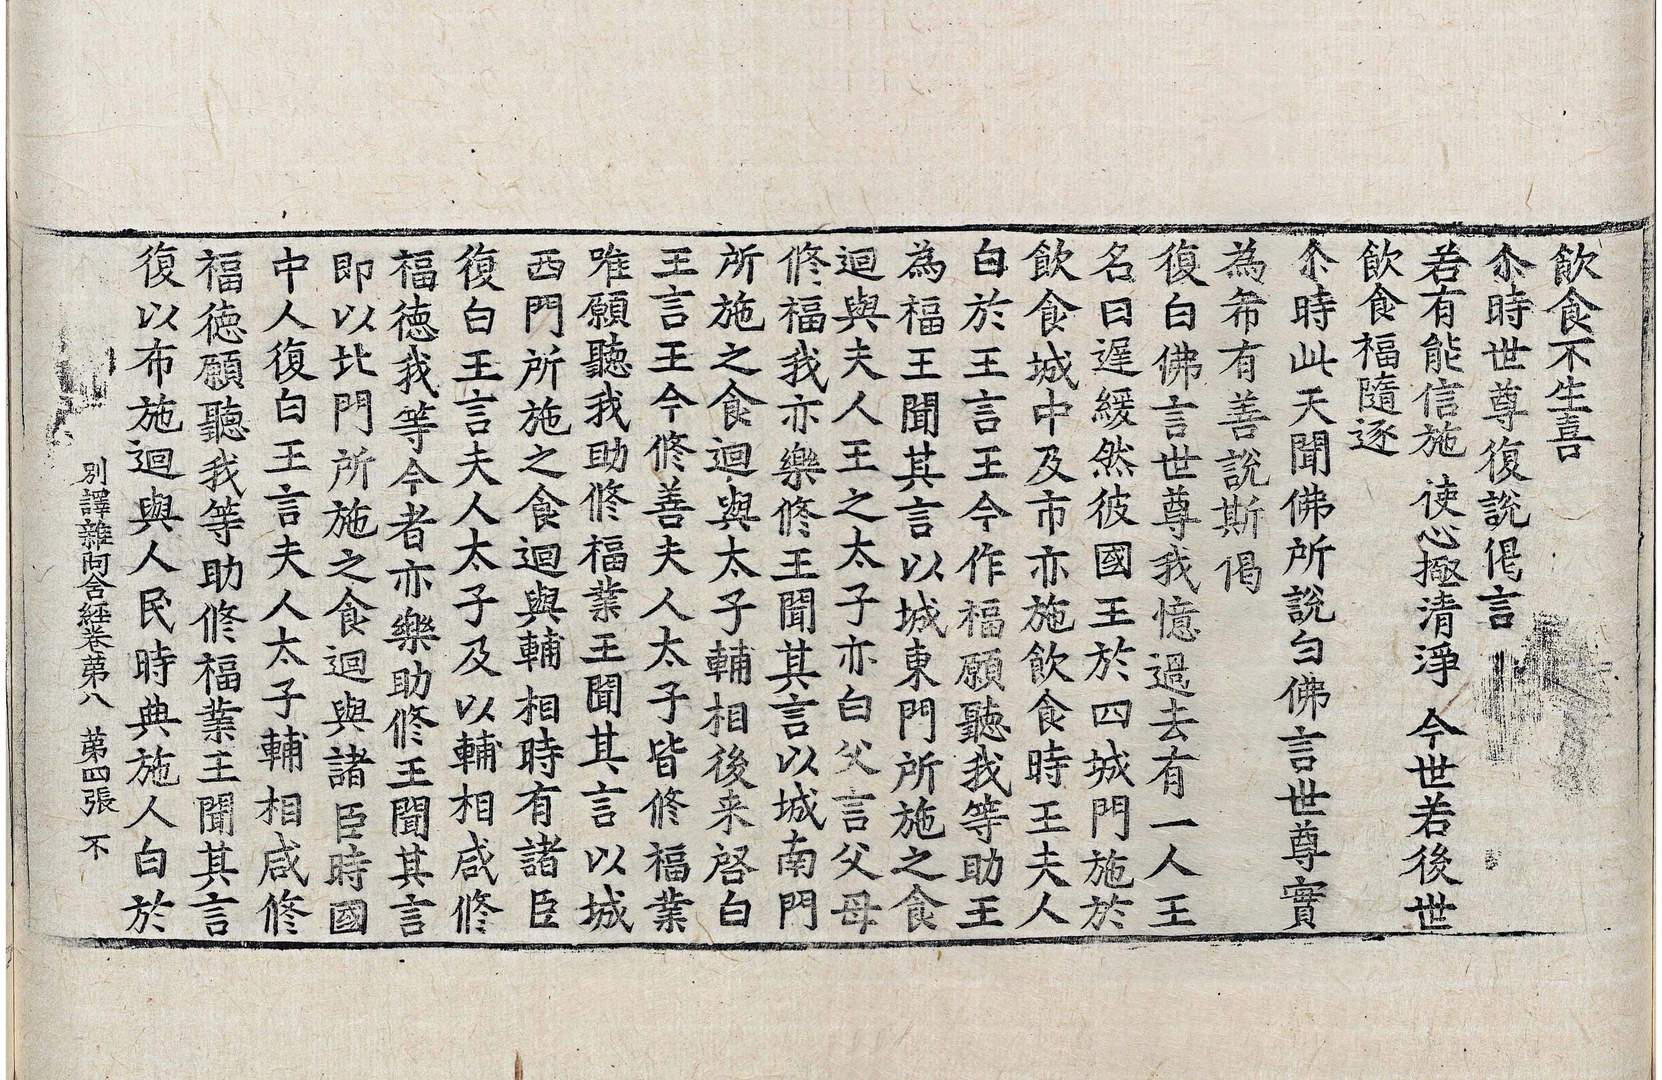 飲食不生喜
尒時世尊復說偈言
若有能信施　使心極清淨　今世若後世
飲食福隨逐
尒時此天聞佛所說匀佛言世尊實
為希有善說斯偈
復白佛言世尊我憶過去有一人王
名曰遅緩然彼國王於四城門施於
飲食城中及市亦施飲食時王夫人
白於王言王今作福願聽我等助王
為福王聞其言以城東門所施之食
迴與夫人王之太子亦白父言父母
修福我亦樂修王聞其言以城南門
所施之食迴與太子輔相後来啓白
王言王今修善夫人太子皆修福業
唯願聽我助修福業王聞其言以城
西門所施之食迴與輔相時有諸臣
復白王言夫人太子及以輔相咸修
福徳我等今者亦樂助修王聞其言
即以北門所施之食迴與諸臣時國
中人復白王言夫人太子輔相咸修
福徳願聽我等助修福業王聞其言
復以布施迴與人民時典施人白於
別譯雜阿含経卷苐八　苐四張　不